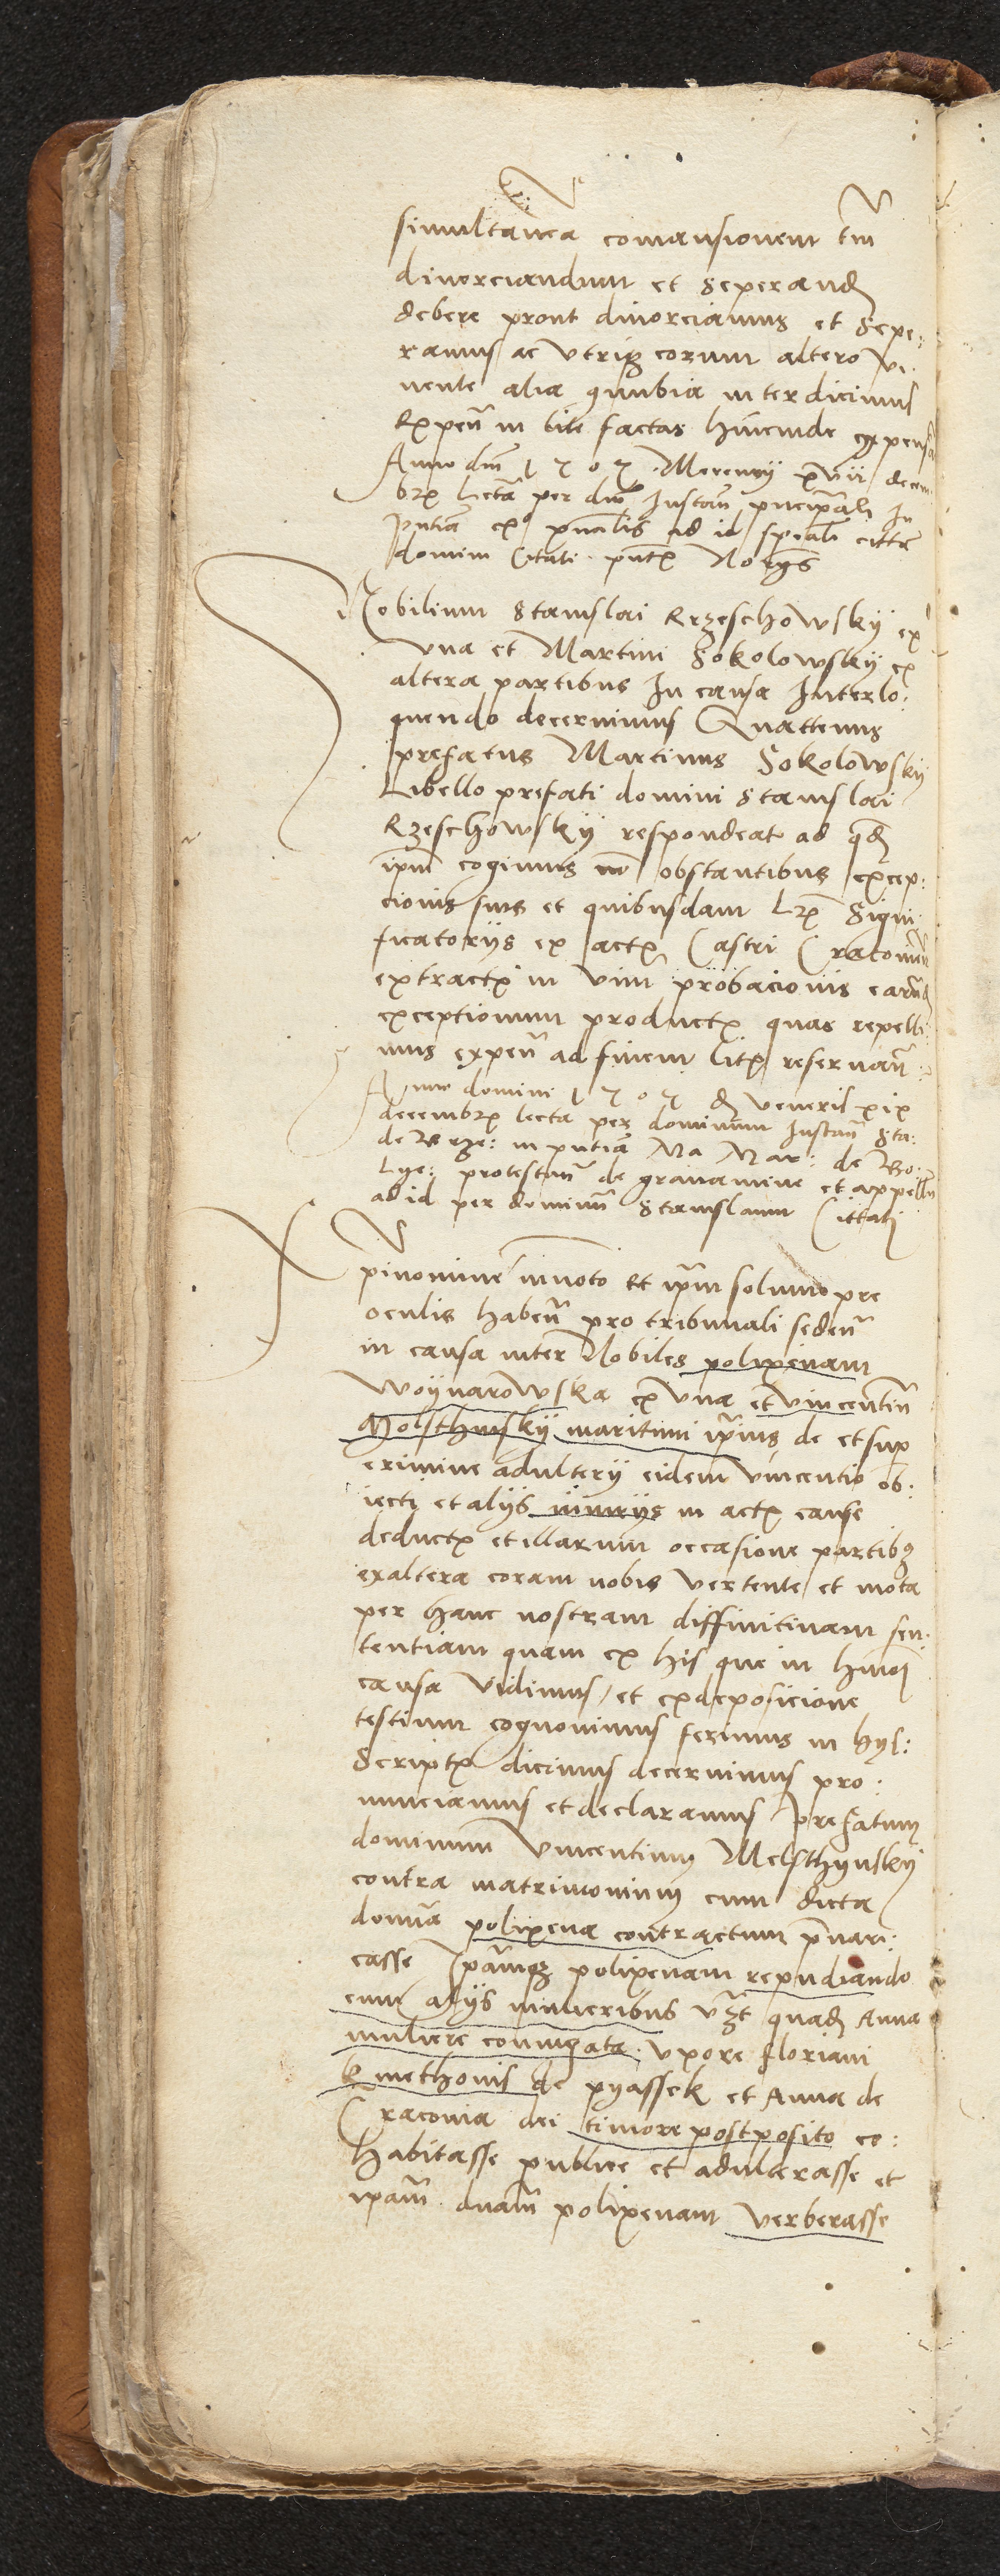 simultanea comansionem tm̄
divorciandum et seperand
debere prout divorciamus et sepe:
ramus ac vtriqz eorum altero vi:
uente alia gnubia interdicimus
Expeñ in lite factas hincinde
Anno dnī 1505 Mercurij xvii decem
brꝭ lecta per dnm̄ Instañ principali In
pntia
domini citati
Nobilium Stanislai Rzeschowskij ex
vna et Martini Sokolowskij ex
altera partibus In causa Interlo:
quendo decernimus Quattenus
prefatus Martinus Sokolowskij
Libello prefati domini Stanislai
Rzeschowskij respondeat ad qd
ipm̄ cogimus no obstantibus excep:
cionis suis et quibusdam lrꝭ Signi
ficatorijs ex actꝭ Castri Cracouieñ
extractꝭ in vim probacionis earund
exceptionum productꝭ quas repelli:
mus expeñ ad finem litꝭ reseruañ
Anno domini 1505 d veneris xix
decembrꝭ lecta per dominum Instañ Sta:
de Rze: in pntia Na Mar: de
protestañ de grauamine et appelln
ad id per dominū Stanislaum Cittati
Xpi nomine inuocato Et ipm̄ solum pre
oculis habeñ pro tribunali sedeñ
in causa inter Nobiles polixenam
Woynarowska ex vna et vincentiū
Molsthinskij maritum ipius de et sup
crimine adulterij eidem vincentio ob:
iectꝭ et alijs iniurijs in actꝭ cause
deductꝭ et illarum occasione partibꝫ
ex altera coram nobis vertente et mota
per hanc nostram diffinitiuam sen:
tentiam quam ex his que in hmoi
causa vidimus et ex deposicione
testium cognouimus ferimus in hys:
Scriptꝭ dicimus decernimus pro:
nunciamus et declaramus prefatum
dominum vincentium Melsthynskij
contra matrimonium cum dicta
domina polixena contractum p̄uari:
casse Ipamqz polixenam repudiando
cum alijs mulieribus vzt quad Anna
muliere coniugata vxore floriani
kmethonis de pyassek et Anna de
Craconia dei timore postposito co:
habitasse publice et adulterasse et
ipam dnam polixenam verberasse